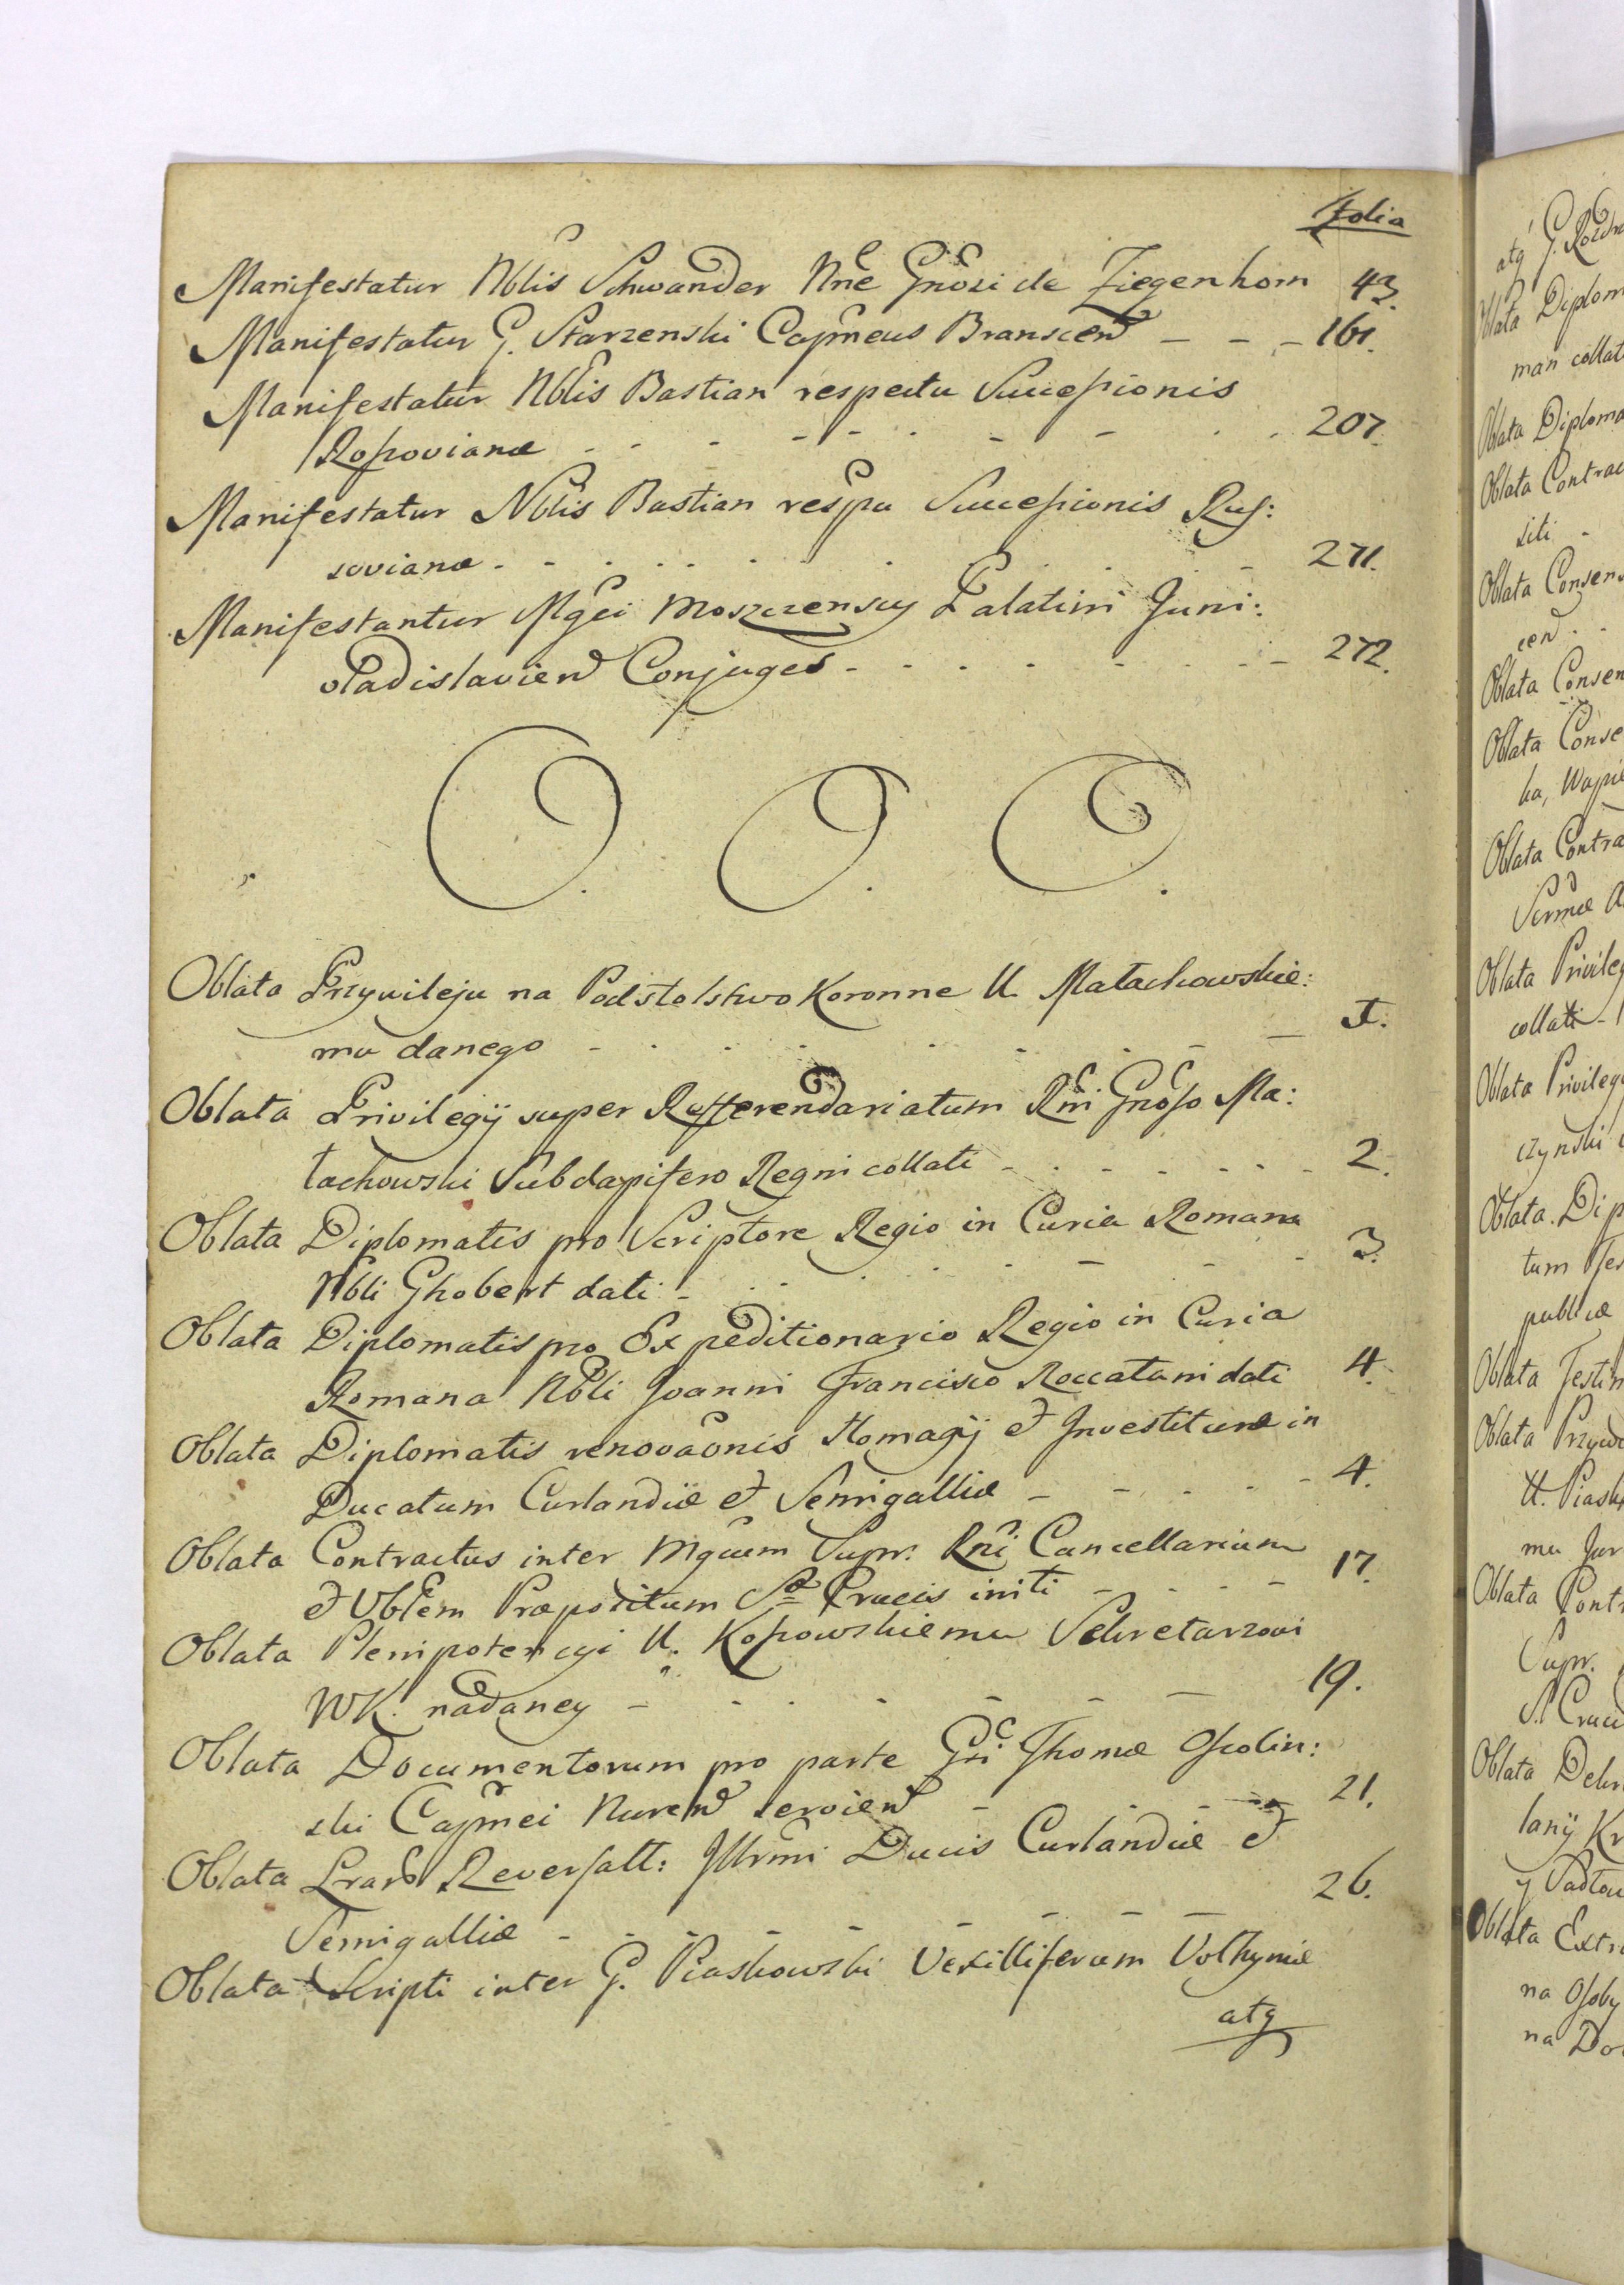 Folia
Manifestatur Nblis Schwander Nne Gnosi de Ziegenhorn 43.
Manifestatur G. Starzenski Capneus Branscen - - - 161.
Manifestatur Nblis Bastian respectu Successionis
Rossovianæ - - - - - - - - 207.
Manifestatur Nblis Bastian respu Successionis Rus:
sovianæ - - - - - - - - - 271.
Manifestantur Mgci Moszczenscy Palatini Juni:
vladislavien Conjuges - - - - - - - 272.
O. O. O.
Oblata Przywileju na Podstolstwo Koronne U. Małachowskie:
mu danego - - - - - - - - 1.
Oblata Privilegij super Refferendariatum Rni Gnoso Ma:
łachowski Subdapifero Regni collati - - - - - - - 2.
Oblata Diplomatis pro Scriptore Regio in Curia Romana
Nbli Ghobert dati - - - - - - - - 3.
Oblata Diplomatis pro Expeditionario Regio in Curia
Romana Nbli Joanni Francisco Roccatani dati 4.
Oblata Diplomatis renovaonis Homagij et Investituræ in
Ducatum Curlandiæ et Semigalliæ - - - - - 4.
Oblata Contractus inter Mgcum Supr: Rni Cancellarium
et Præpositum Stæ Crucis initi - - - - 17.
Oblata Plenipotencyi U. Kossowskiemu Sekretarzowi
WK. nadaney - - - - - - - 19.
Oblata Documentorum pro parte Gsi Thomæ Ossolin:
ski Capnei Nuren servien - - - - 21.
Oblata Lrarum Reversall: Illrmi Ducis Curlandiæ et
Semigalliæ - - - - - - - - 26.
Oblata Scripti inter G. Piaskowski Vexilliferum Volhyniæ
atq
atq G.
Oblata Diplom
man collat
Oblata Diploma
Oblata Contrac
siti -
Oblata Consens
cen - -
Oblata Consen
Oblata Conse
ka,
Oblata Contra
Oblata Privileg
collati -
Oblata Privilegi
czynski
Oblata Dip
tum
publicæ
Oblata Testim
Oblata Przywi
U. Piask
mu Jur
Oblata Contr
Supr.
S. Cruci
Oblata Dekr
laryi Kr
y
Oblata Extra
na Osoby
na Do